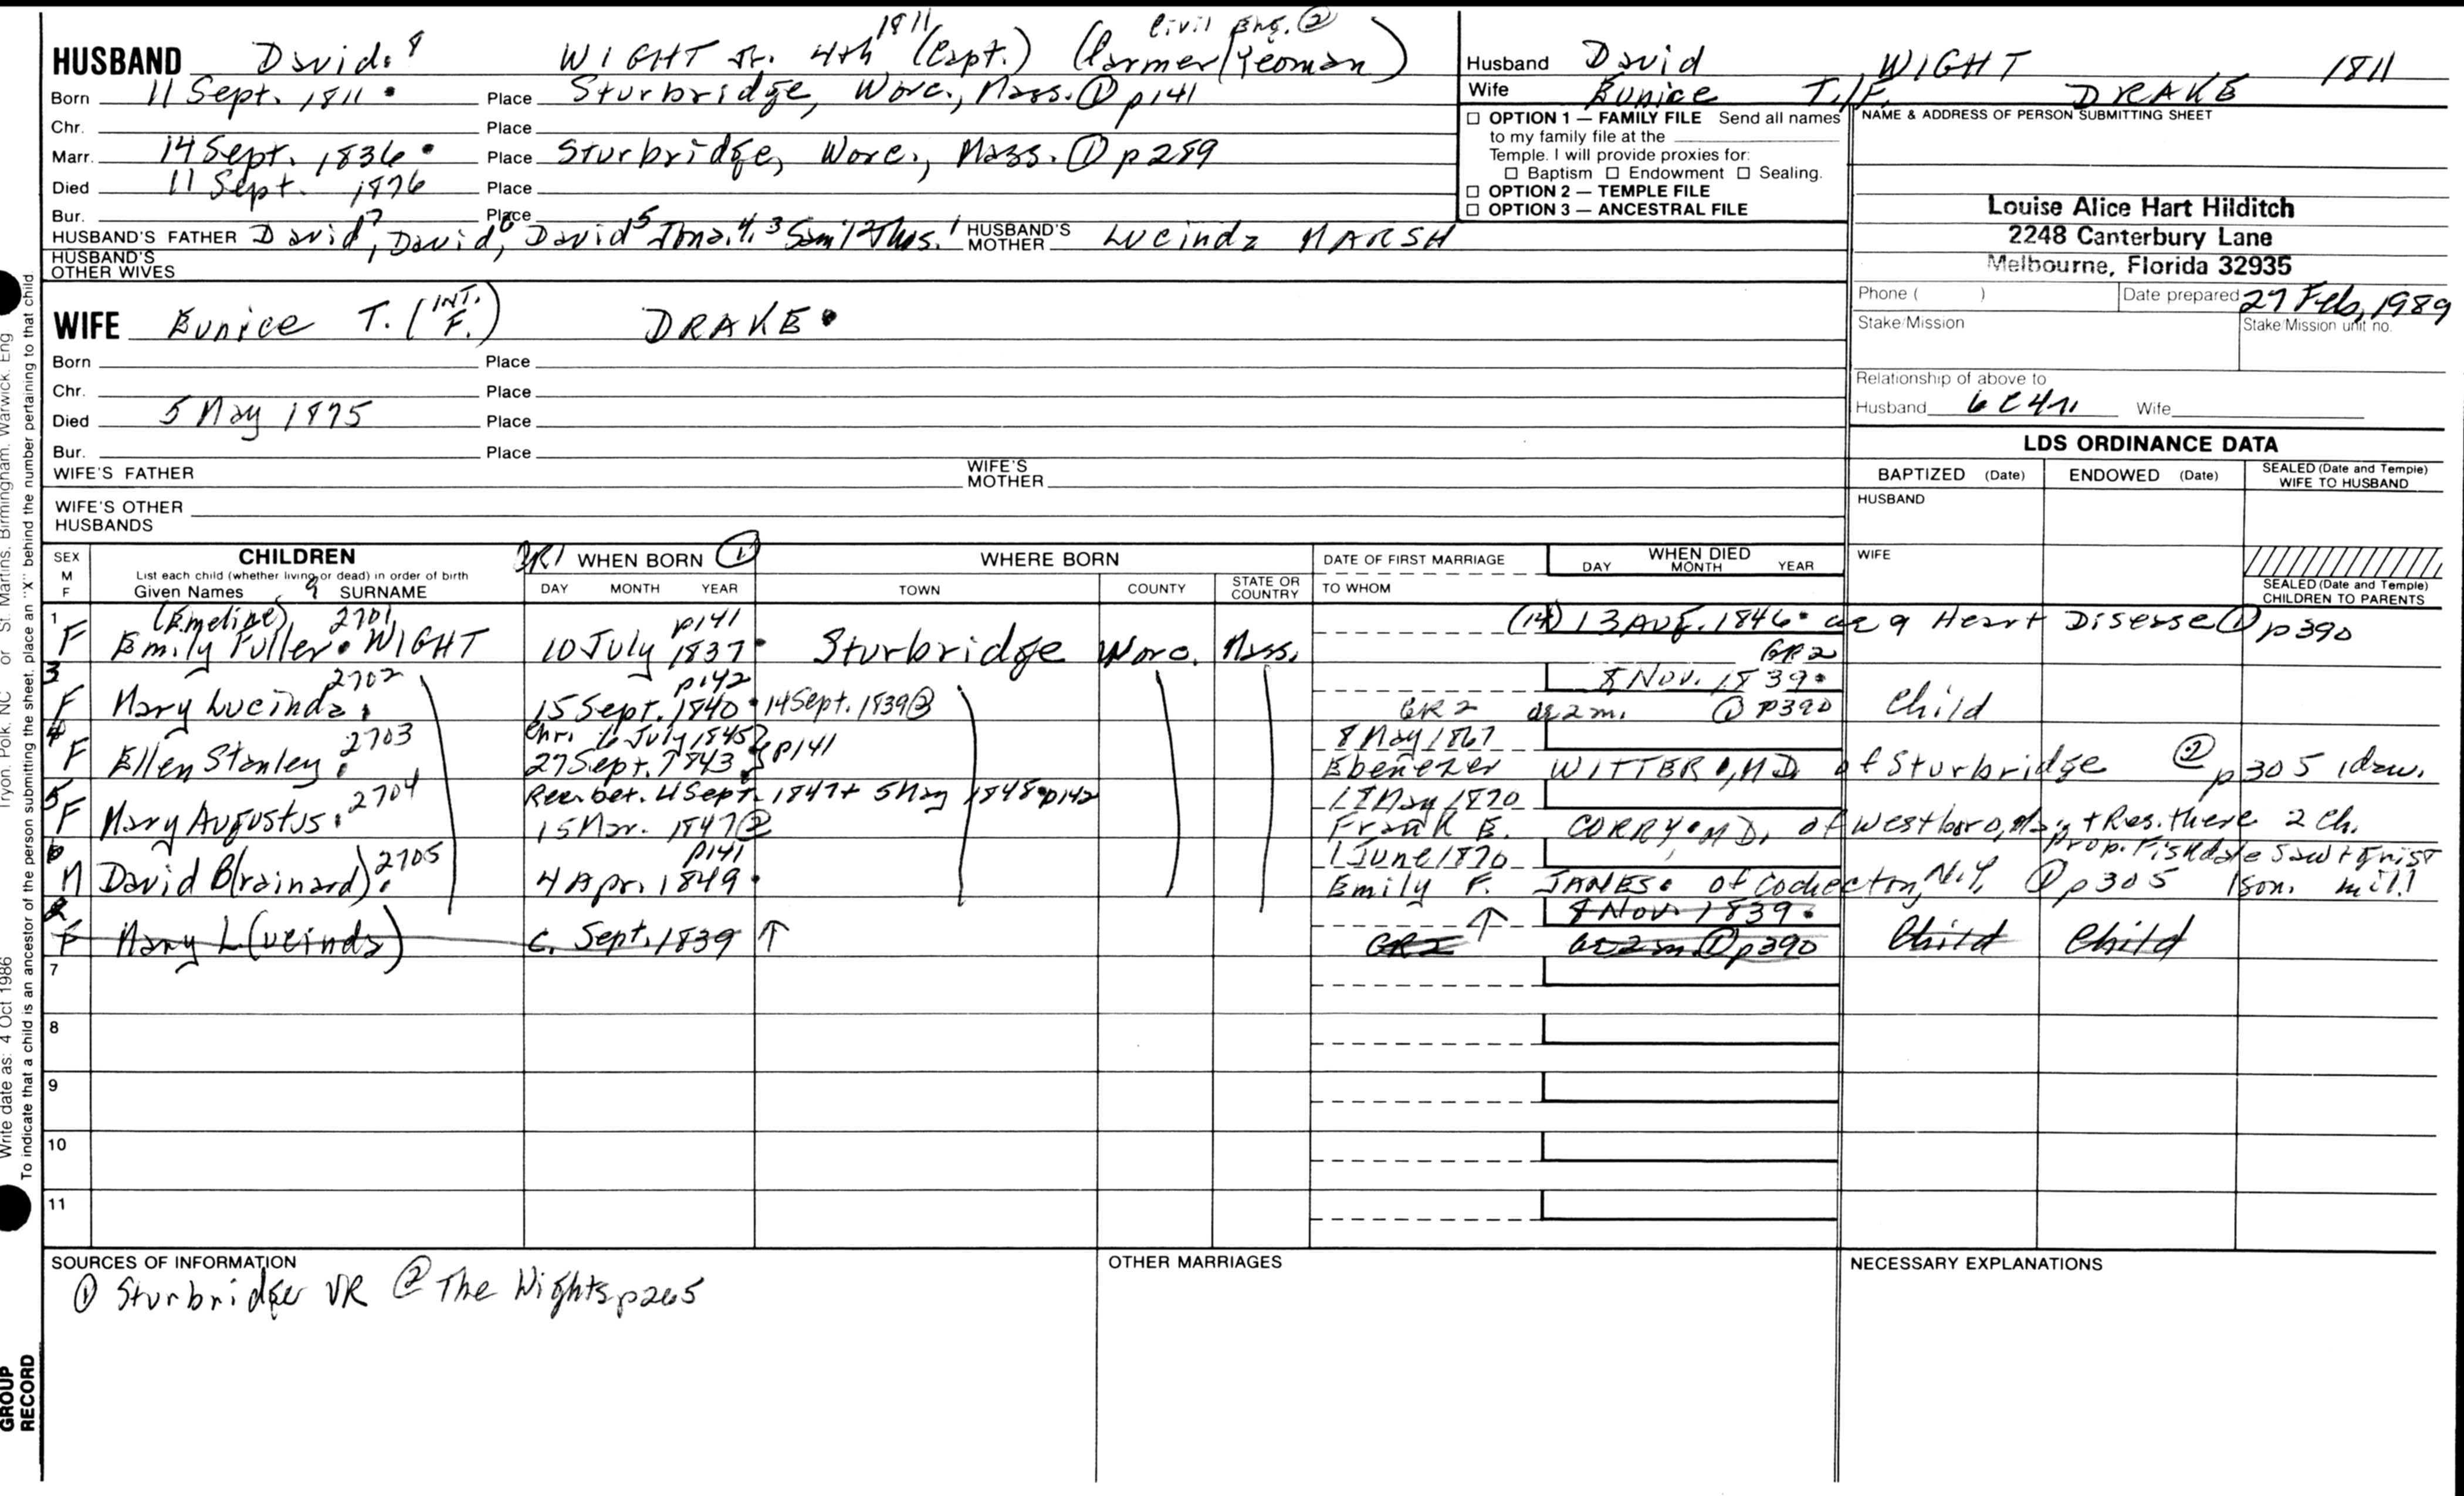 1811 Civil Eng. ②
HUSBAND David⁸ WIGHT Jr. 4th (Capt.) (farmer/Yeoman)
Born 11 Sept. 1811 • Place Sturbridge, Worc., Mass. ① p141
Chr. Place
Marr. 14 Sept. 1836 • Place Sturbridge, Worc., Mass. ① p289
Died 11 Sept. 1876 Place
Bur. Place
HUSBAND'S FATHER David⁷, David⁶, David⁵ Jona.⁴,³ Sam'l² Thos.¹ HUSBAND'S MOTHER Lucinda MARSH
HUSBAND'S OTHER WIVES
Husband David WIGHT 1811
Wife Eunice T./F. DRAKE
☐ OPTION 1 — FAMILY FILE Send all names
to my family file at the
Temple. I will provide proxies for:
☐ Baptism ☐ Endowment ☐ Sealing.
☐ OPTION 2 — TEMPLE FILE
☐ OPTION 3 — ANCESTRAL FILE
NAME & ADDRESS OF PERSON SUBMITTING SHEET
Louise Alice Hart Hilditch
2248 Canterbury Lane
Melbourne, Florida 32935
Phone ( ) Date prepared 27 Feb, 1989
Stake/Mission Stake/Mission unit no.
Relationship of above to
Husband 6C4R Wife
WIFE Eunice T. (INT. F.) DRAKE •
Born Place
Chr. Place
Died 5 May 1875 Place
Bur. Place
WIFE'S FATHER WIFE'S MOTHER
WIFE'S OTHER HUSBANDS
LDS ORDINANCE DATA
BAPTIZED (Date) ENDOWED (Date) SEALED (Date and Temple) WIFE TO HUSBAND
HUSBAND
WIFE
SEALED (Date and Temple) CHILDREN TO PARENTS
SEX M F
CHILDREN
List each child (whether living or dead) in order of birth
Given Names 9 SURNAME
WHEN BORN ①
DAY MONTH YEAR
WHERE BORN
TOWN COUNTY STATE OR COUNTRY
DATE OF FIRST MARRIAGE
TO WHOM
WHEN DIED
DAY MONTH YEAR
1 (Emeline) 2701 p141 (14) 13 Aug. 1846 • ae 9 Heart Disease ① p390
F Emily Fuller • WIGHT 10 July 1837 • Sturbridge Worc. Mass. GR2
3 2702 p142 8 Nov. 1839 •
F Mary Lucinda • 15 Sept. 1840 • 14 Sept. 1839 ② GR2 ae 2 m. ① p390 Child
4 2703 Chr. 6 July 1845 p141 8 May 1867
F Ellen Stanley • 27 Sept. 1843 Ebenezer WITTER •, M.D. of Sturbridge ② p305 1 daw.
5 2704 Rec. bet. 4 Sept. 1847 + 5 May 1848 • p142 18 May 1870
F Mary Augustus • 15 Mar. 1847 ② Frank E. CORRY • M.D. of Westboro, Ma, + Res. there 2 ch.
6 2705 p141 1 June 1870 prop. Fiskdale Saw + Grist
M David B(rainard) • 4 Apr. 1849 • Emily F. JANES • of Cochecton, N.Y. ① p305 1 son. mill
2 8 Nov. 1839 •
F Mary L(ucinda) c. Sept. 1839 ↑ GR2 ↑ ae 2 m ① p390 Child Child
7
8
9
10
11
SOURCES OF INFORMATION
① Sturbridge VR ② The Wights p265
OTHER MARRIAGES
NECESSARY EXPLANATIONS
Write date as: 4 Oct 1986 Tryon, Polk, NC or St. Martins, Birmingham, Warwick, Eng
To indicate that a child is an ancestor of the person submitting the sheet, place an "X" behind the number pertaining to that child
GROUP
RECORD